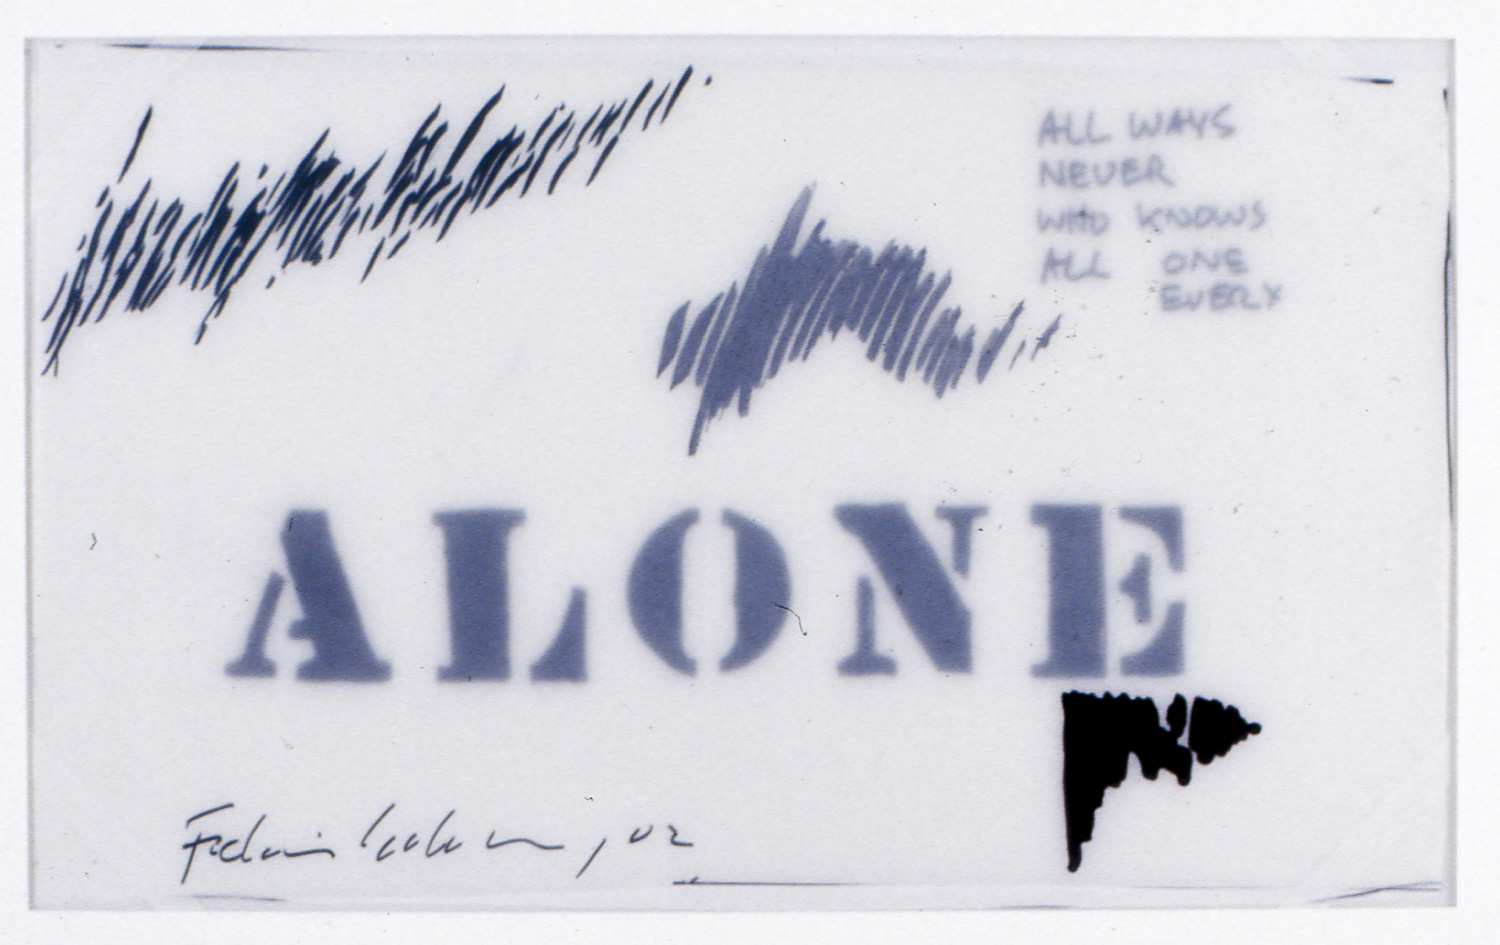 ALL WAYS
NEVER
WHO KNOWS
ALL ONE
EVERY
ALONE
, 02